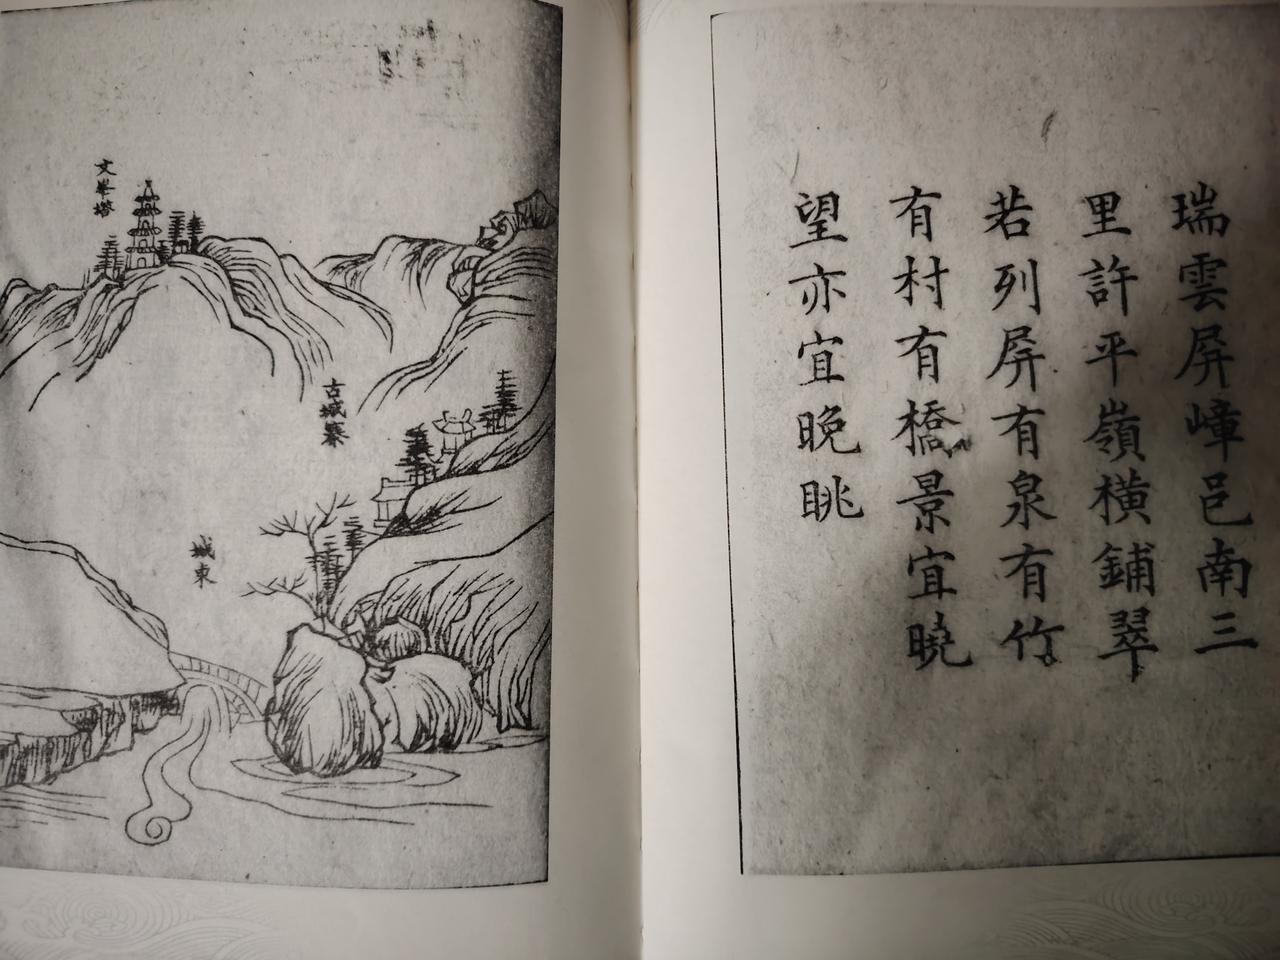 瑞雲屏嶂邑南三
里許平嶺橫鋪翠
若列屏有泉有竹
有村有橋景宜曉
望亦宜晚眺
文峯塔
古城寨
城東